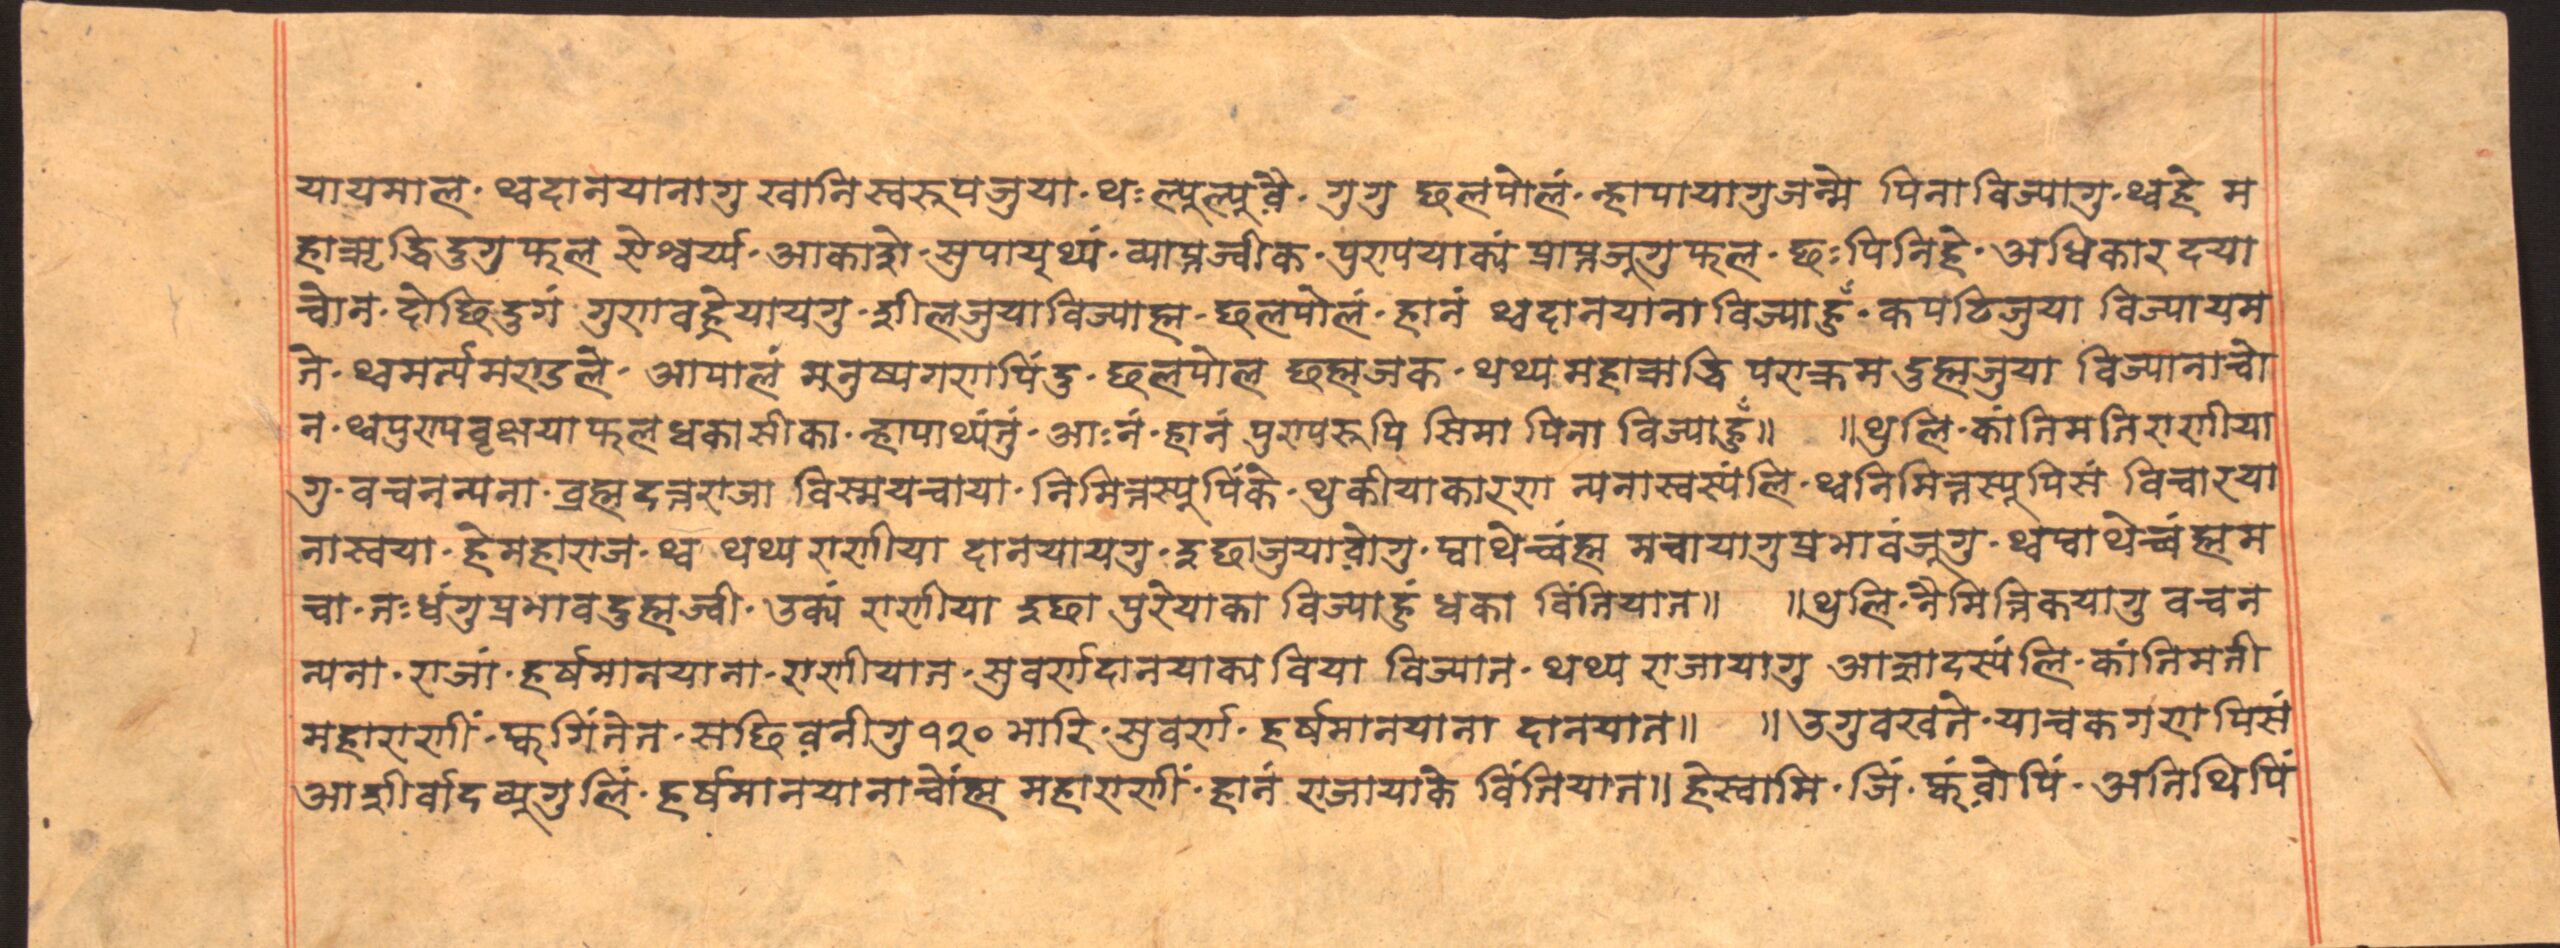 यायमाल· थ्वदानयानागु खानिस्वरूपजुया· थः ल्यूल्यूवै़· गुगु छलपोलं· न्हापायागुजन्मे पिनाविज्यागु· थ्वहे म
हाऋद्धिदुगुफल ऐश्वर्य्य· आकाशे· सुपाय्‌थ्यं· व्याप्तज्वीक· पुण्यपयाक्यं प्राप्तजूगुफल· छःपिनिहे· अधिकारदया
चोन· दोछिदुगं गुणवह्रेयायगु· शीलजुयाविज्याह्म· छलपोलं· हानं थ्वदानयानाविज्याहुँ· कपठिजुया विज्यायम
ते· थ्वमर्त्यमण्डले· आपालं मनुष्यगणपिंदु· छलपोल छह्मजक· थथ्य महाऋद्धि पराक्रम दुह्मजुया विज्यानाचो
न· थ्वपुण्यवृक्षयाफलधकासीका· न्हापाथ्यंतुं· आःनं· हानं पुण्यरूपि सिमा पिना विज्याहुँ॥ ॥थुलि· कांतिमतिराणीया
गु· वचनन्यना· ब्रह्मदत्तराजा विस्मयचाया· निमित्तस्यूपिंके· थुकीयाकारण न्यनास्वस्यंलि· थ्वनिमित्तस्यूपिसं विचारया
नास्वया· हेमहाराज· थ्व थथ्य राणीया दानयायगु· इछाजुयावो़गु· प्वाथेच्वंह्म मचायागुप्रभावंजूगु· थ्वप्वाथेच्वंह्मम
चा· तःधंगुप्रभावदुह्मज्वी· उक्यं राणीया इछा पुरेयाका विज्याहुं धका विंतियात॥ ॥थुलि· नैमित्तिकयागु वचन
न्यना· राजां· हर्षमानयाना· राणीयात· सुवर्णदानयाक्य विया विज्यात· थथ्य राजायागु आज्ञादस्यंलि· कांतिमती
महाराणीं· फ्वगिंतेत· सछिव़नीगु १२० भारि· सुवर्ण· हर्षमानयाना दानयात॥ ॥उगुवखते· याचकगणपिसं
आशीर्वादब्यूगुलिं· हर्षमानयानाचोंह्म महाराणीं· हानं राजायाके विंतियात॥ हेस्वामि· जिं· फ्वंवो़पिं· अतिथिपिं